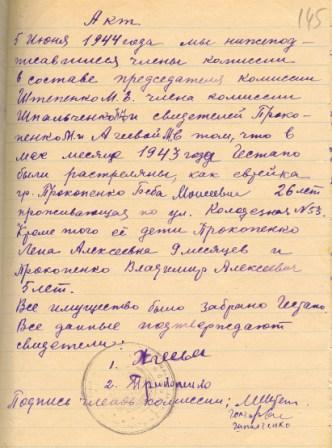 145
Акт
5 Июня 1944 года мы нижепод-
писавшиеся члены комиссии
в составе председателя комиссии
Штепенко М.Е. члена комиссии
Шпальченко и свидетелей Проко-
пенко М. и Агеевой М в том, что в
мае месяце 1943 года Гестапо
были растреляны, как еврейка
гр. Прокопенко Беба Моисеевна 26 лет
проживающая по ул. Колодезная № 53.
Кроме того её дети Прокопенко
Лена Алексеевна 9 месяцев и
Прокопенко Владимир Алексеевич
5 лет.
Все имущество было забрано Гестапо.
Все данные подтверждают
свидетели:
1. Агеева
2.
Подпись членов комиссии;